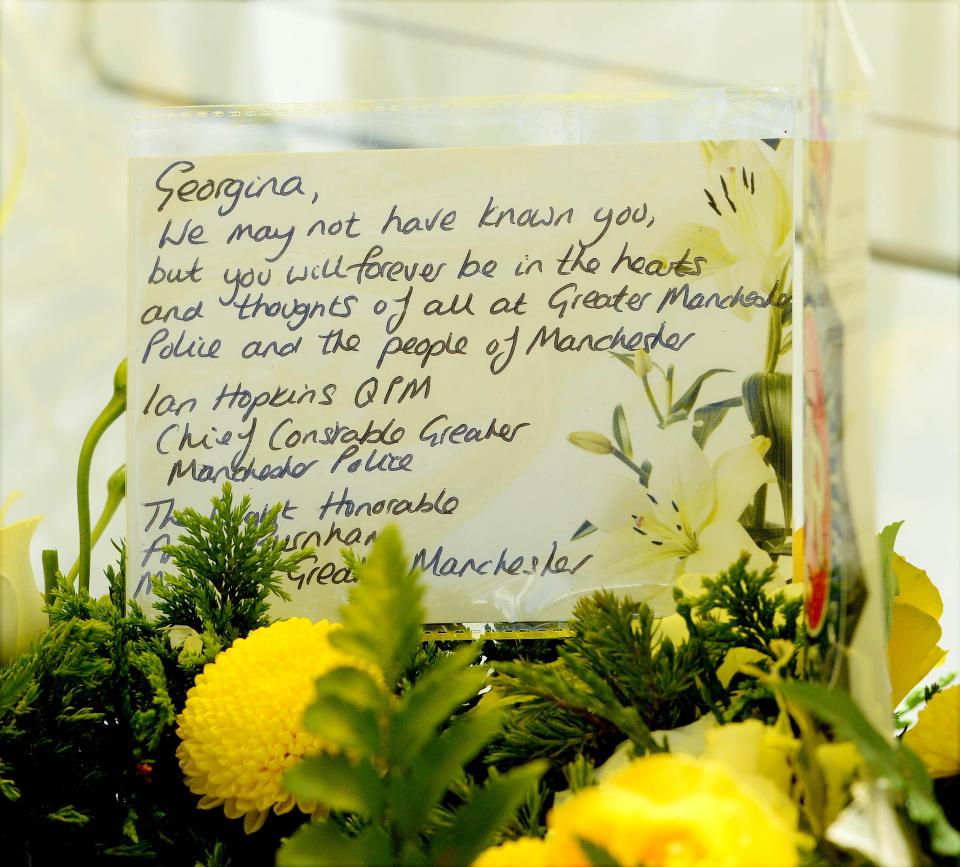 Georgina,
We may not have known you,
but you will forever be in the hearts
and thoughts of all at Greater Manchester
Police and the people of Manchester
Ian Hopkins QPM
Chief Constable Greater
Manchester Police
The Honorable
Manchester